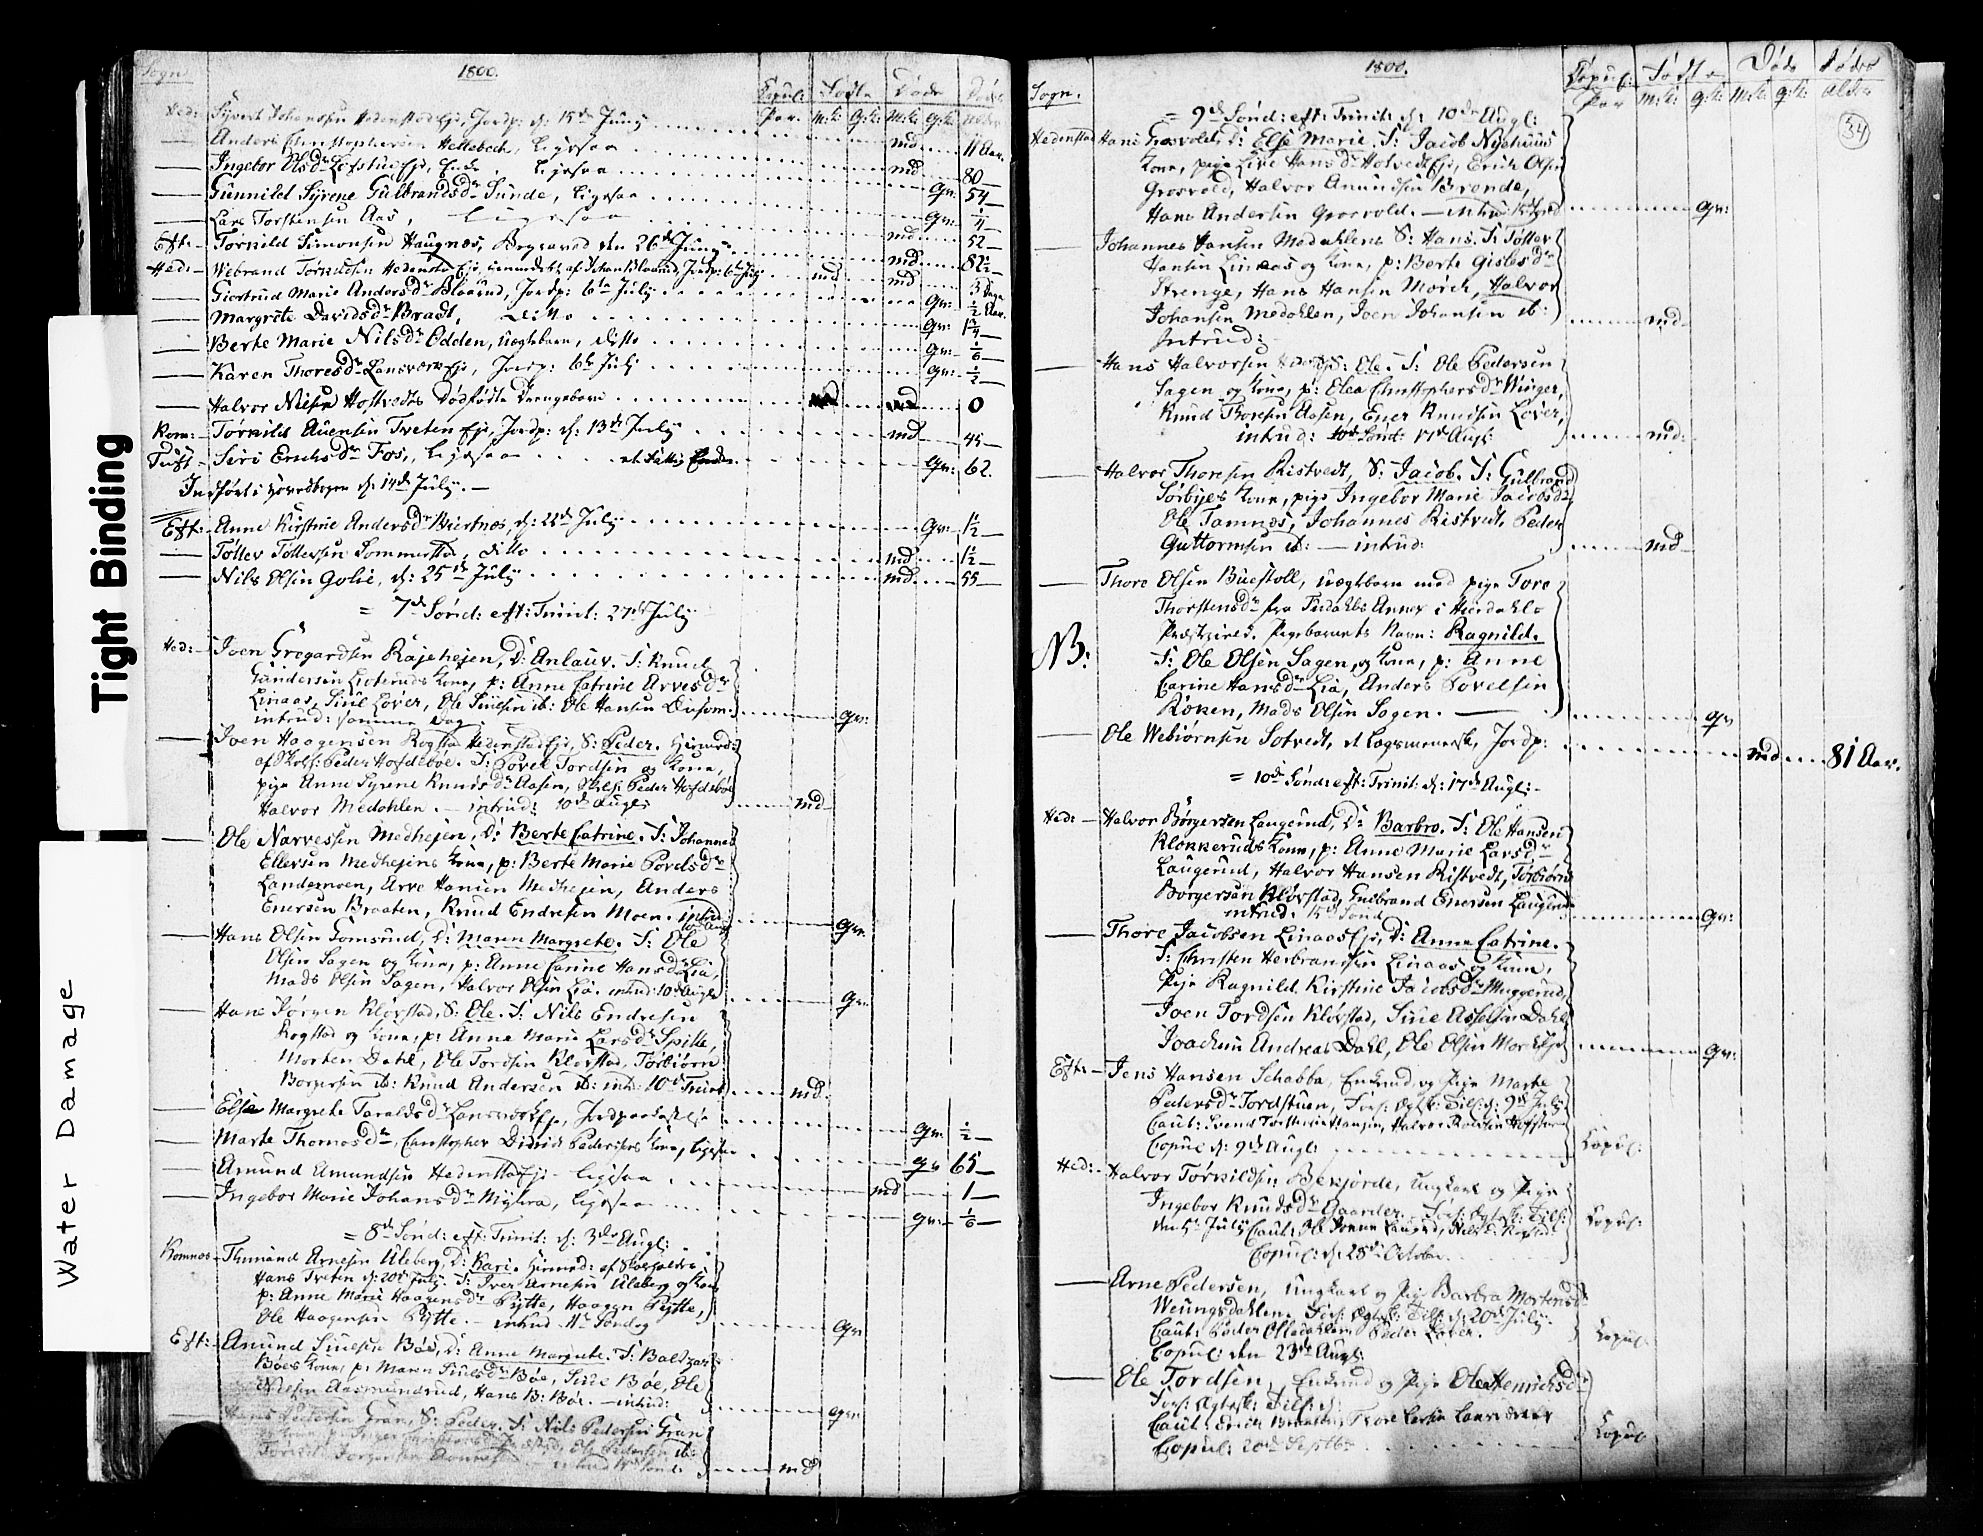 Tight Binding
Water Damage
Sogn
1800.
Copul: Par.
Fødte M:k: Q:k:
Døde M:k: Q:k:
Dødes Alder
Hed: Syvert Johansen Hedenstad Eje, Jordp: d: 15de Juny md 11 Aar.
Anders Christophersen Hellebech, ligesaa md 80
Ingebor Olsdr Eje, Enke, ligesaa Qv: 54
Gunnild Syrene Gulbrandsdr Sunde, ligesaa Qv: 1/4
Lars Torstensen Aas, ligesaa md 52
Eft: Torkild Simonsen Haugnæs, Begraved den 26de Juny md 82½
Hed: Webrand Torkildsen Hedenstad Eje, hiemmedøbt af Johan Blaarud, Jordp: 6te July md md 3 Dage
Giertrud Marie Andersdr Blaarud, Jordp: 6te July Qv: ½ Aar.
Margrete Davidsdr Bradt, ditto Qv: 1¾
Berte Marie Nilsdr Odden, uægtebarn, ditto Qv: 1/6
Karen Thoresdr Landsværk Eje, Jordp: 6te July Qv: ½
Halvor Nilsen Hostvedts Dødfødte Drengebarn md md 0
Kom: Torkild Auensen Tveten Eje, Jordp: d: 13de July md 45
Tuft Siri Erichsdr Fos, ligesaa et fattig Qv: 62.
Indført i Hovedbogen d: 14de July.
Eft: Anne Kirstine Andersdr Biertnes, d: 22de July Qv: 1½
Tollev Tollevsen Sommerstad, ditto md 1½
Nils Olsen Golie, d: 25de July md 55
= 7de Sønd: eft: Trinit: 27de July
Hed: Joen Gregardsen Rajehejen, D: Anlaug. T: Knud
Gundersen Kone, p: Anne Catrine Arvesdr
Linaas, Siul Løver, Ole Siulsen ib: Ole Hansen
intrud: samme Dag Qv:
Joen Haagensen Rogstad Hedenstad Eje, S: Peder. Hiemd:
af Skolh: Peder Hofdebøe. T: Povel Tordsen og Kone,
pige Anne Syrene Knudsdr Aasen, Skolh: Peder Hofdebøe
Halvor Medahlen. intrud: 10de Aug: md
Ole Narvessen Medhejen, D: Berte Catrine. T: Johannes
Ellersen Medhejens Kone, p: Berte Marie Povelsdr
Landemoen, Arve Hansen Medhejen, Anders
Enersen Braaten, Knud Endresen Moen. intrud: Qv:
Hans Olsen Gomsrud, D: Maren Margrete. T: Ole
Olsen Sagen og Kone, p: Anne Carine Hansdr Lia,
Mads Olsen Sagen, Halvor Olsen Lia. intrud: 10de Aug: Qv:
Hans Jørgen Kløvstad, S: Ole. T: Nils Endresen
Rogstad og Kone, p: Anne Marie Larsdr Spitte,
Morten Dahl, Ole Tordsen Kløvstad, Torbiørn
Borgersen ib: Knud Andersen ib: intr: 10de Trinit: md
Else Margrete Taraldsdr Landsværk Eje, Jordpaakastelse Qv: ½
Marte Thomasdr, Christopher Didrich Pedersens Kone, ligesaa Qv 65
Amund Amundsen Hedenstad Eje ligesaa md 1
Ingebor Marie Johansdr Myhra, ligesaa Qv: 1/6
= 8de Sønd: eft: Trinit: d: 3die Aug:
Komnes Thimand Arnesen Aleberg, D: Kari. Hiemd: af Skoeholder
Hans Tveten d: 20de July. T: Iver Arnesen Aleberg og Kone
p: Anne Marie Haagensdr Pytte, Haagen Pytte,
Ole Haagensen Pytte. intrud 11te Søndag Qv:
Eft: Amund Siulsen Bøe, D: Anne Margrete. T: Baltzar
Bøes Kone, p: Maren Siulsdr Bøe, Siul Bøe, Ole
Nilsen Aasmundrud, Hans B: Bøe. intrud: Qv:
Hans Pedersen Gran, S: Peder. T: Nils Pedersen Gran
Ole Pedersen ib:
Torkild Jørgensen md
1800.
34
Sogn.
Copul: Par
Fødte M:k: Q:k:
Døde M:k: Q:k:
Dødes Alder
= 9de Sønd: eft: Trinit: d: 10de Aug:
Hedenstad Hans Grosvold, D: Else Marie. T: Jacob Nyehuus
Kone, pige Live Hansdr Holvedt Eje, Erich Olsen
Grosvold, Halvor Amundsen Brende,
Hans Andersen Grosvold. intrud 15de Sønd Qv:
Johannes Hansen Medahlens S: Hans. T: Tollev
Hansen Linaas og Kone, p: Berte Gislesdr
Strenge, Hans Hansen Mørch, Halvor
Johansen Medahlen, Joen Johansen ib: md
Intrud:
Hans Halvorsen S: Ole. T: Ole Pedersen
Sagen og Kone, p: Olea Christophersdr Winger,
Knud Thoresen Aasen, Ener Knudsen Løver,
intrud: 17de Aug: md:
Halvor Thoresen Ristvedt, S: Jacob. T: Gulbrand
Sørbyes Kone, pige Ingebor Marie Jacobsdr
Ole Tamnes, Johannes Ristvedt, Peder
Guttormsen ib: intrud: md
NB: Thore Olsen Buestoll, uægtebarn med pige Tore
Thorstensdr fra Annex i Hierdahls
Præstegield. Pigebarnets Navn: Ragnild.
T: Ole Olsen Sagen, og Kone, p: Anne
Carine Hansdr Lia, Anders Povelsen
Røren, Mads Olsen Sagen. Qv
Ole Webiørnsen Sotvedt, et Lagsmennesk, Jordp: md 81 Aar.
= 10de Sønd: eft: Trinit: d: 17de Aug:
Hed: Halvor Børgersen Laugerud, D: Barbro. T: Ole Hansen
Klokkeruds Kone, p: Anne Marie Larsdr
Laugerud, Halvor Hansen Ristvedt, Torbiørn
Borgersen Kløvstad, Gulbrand Enersen Laugerud
intrud: 15de Sønd Qv:
Thore Jacobsen Linaas Eje, D: Anne Catrine.
T: Christen Herbrandsen Linaas og Kone,
Pige Ragnild Kirstine Jacobsdr Muggerud,
Joen Tordsen Kløvstad, Siul Dahl
Joachim Andreas Dahl, Ole Olsen Qv:
Eft: Jens Hansen Schabba, Enkemd og Pige Marte
Pedersdr Tordstuen, Forl: Ægtsk: Tilf: d: 9de July
Caut: Svend Torstensen Haugen, Halvor
Copul: d: 9de Aug: Copul:
Hed: Halvor Torkildsen Bekjorde, Ungkarl og Pige
Ingebor Knudsdr Gaarder. Forl: Ægtsk: Tilf:
den 5te July. Caut:
Copul: d: 28de October Copul:
Arne Pedersen, Ungkarl og Pige Barbra Mortensdr
Weungsdahlen. Forl: Ægtsk: Tilf: d: 20de July.
Caut: Peder Olledahlen, Peder Løver.
Copul: den 23de Aug: Copul:
Ole Tordsen, Enkemd og Pige Olea Henrichsdr
Forl: Ægtesk: Tilf: d:
Caut: Erich Thore Larsen Landsværk
Copul: 20de Septbr Copul: